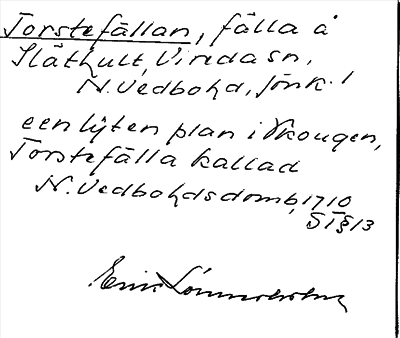 Torstefällan, fälla å
Släthult, Vireda sn,
N. Vedbohd, Jönk. l
een lijten plan i Skougen,
Torstefälla kallad
N. Vedbohdsdomb, 1710
ST§13
Erik